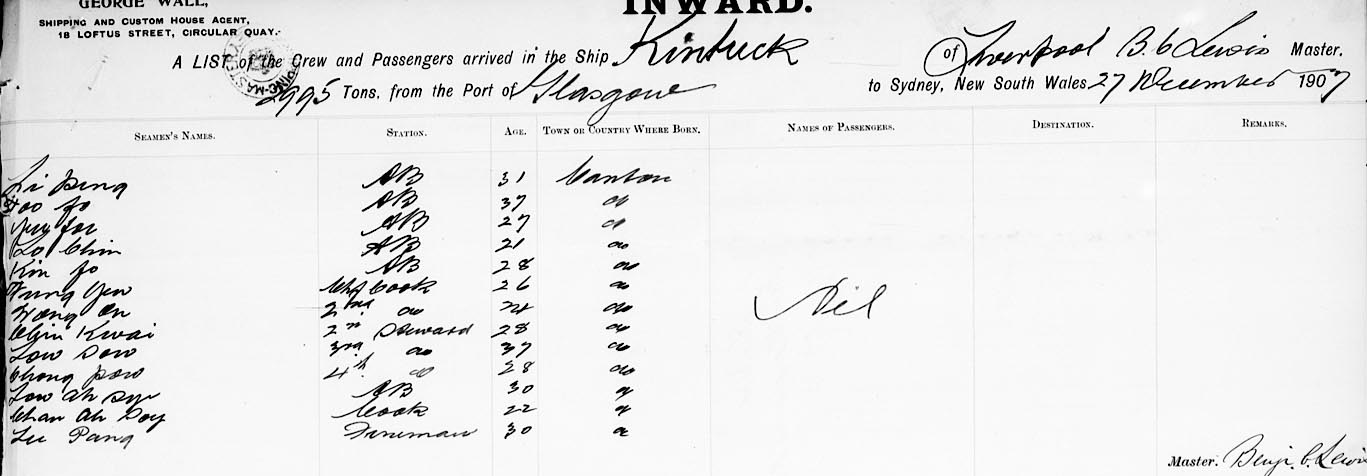 GEORGE WALL,
SHIPPING AND CUSTOM HOUSE AGENT,
18 LOFTUS STREET, CIRCULAR QUAY.
INWARD.
A LIST of the Crew and Passengers arrived in the Ship Kintuck of Liverpool B. C Lewis Master.
2995 Tons, from the Port of Glasgow to Sydney, New South Wales 27 December 1907
SEAMEN'S NAMES. STATION. AGE. TOWN OR COUNTRY WHERE BORN. NAMES OF PASSENGERS. DESTINATION. REMARKS.
Li AB 31 Canton
Foo Jo AB 37 do
AB 27 do
Lo Chin AB 21 do
Kin Jo AB 28 do
Wung Yew Chf Cook 26 do
Wong On 2nd do 24 do
Nil
Chin Kwai 2nd Steward 28 do
Low Sow 3rd do 37 do
Chong Sow 4th do 28 do
Low Ah AB 30 do
Chan Ah Soy Cook 22 do
Lee Pang Fireman 30 do
Master. Benj. C. Lewis